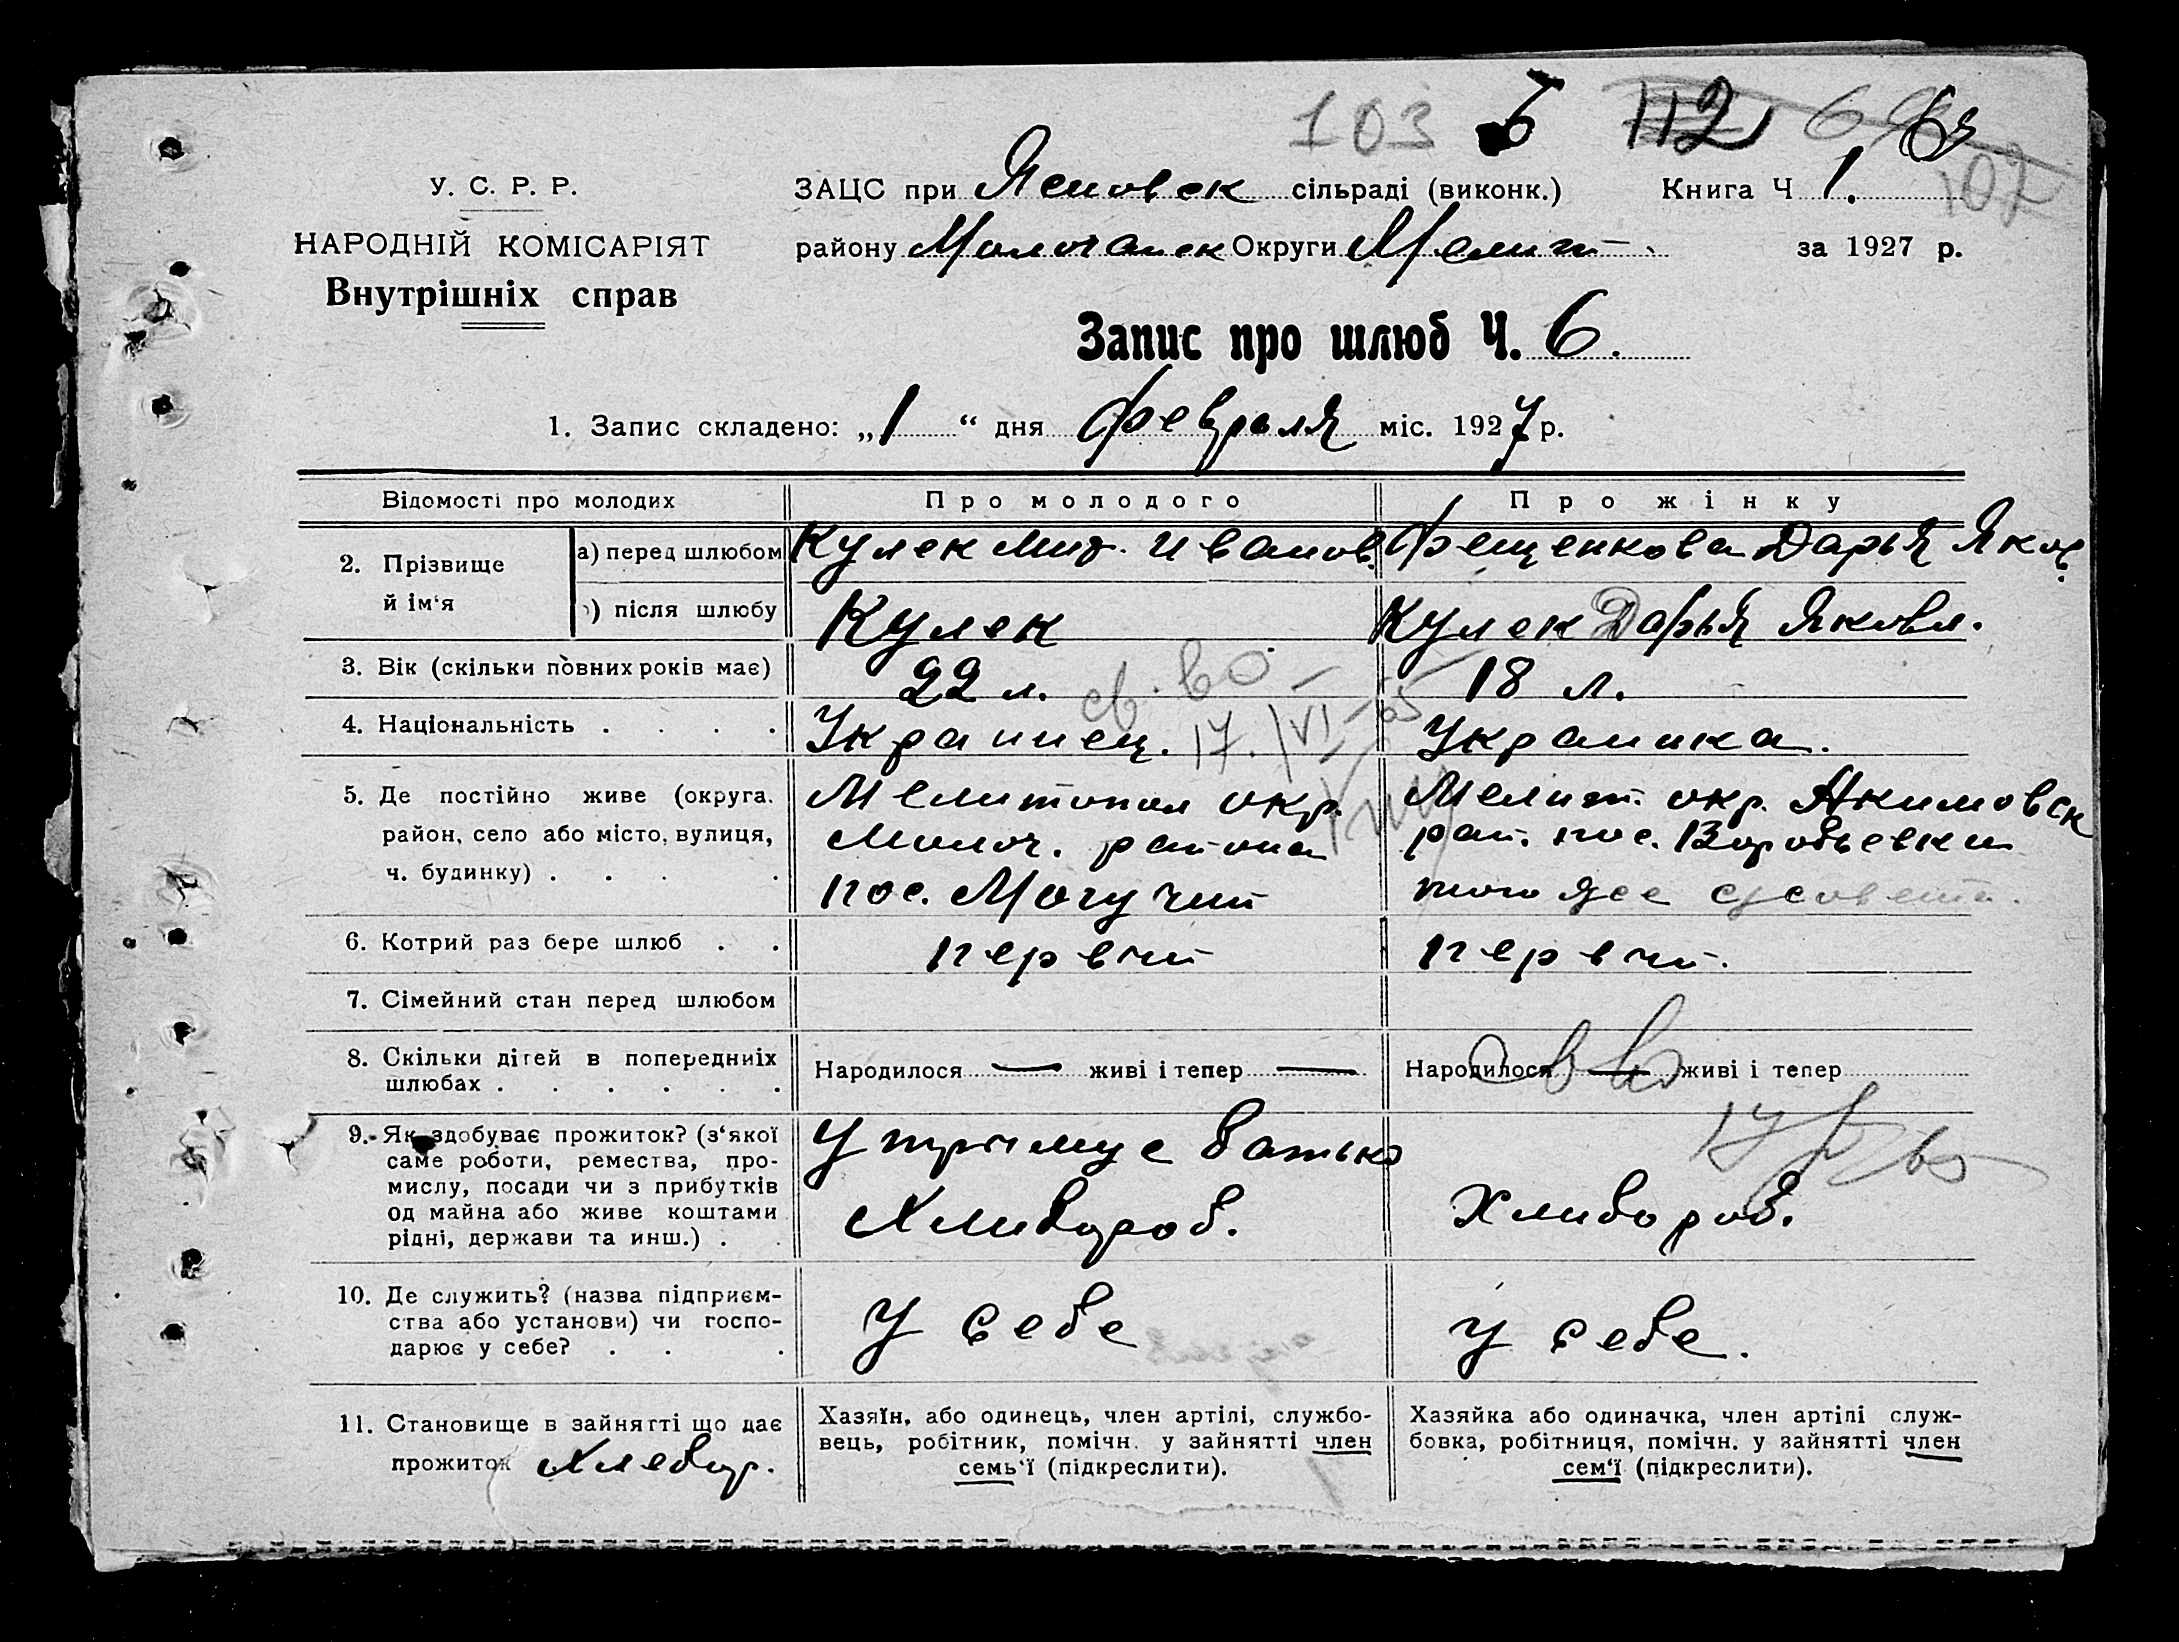 103 6 112 68 63
102
У. С. Р. Р.
НАРОДНІЙ КОМІСАРІЯТ
Внутрішніх справ
ЗАЦС при Ясновск сільраді (виконк.) Книга Ч 1.
району Молочанск Округи Мелит за 1927 р.
Запис про шлюб Ч. 6.
1. Запис складено: „1“ дня Февраля міс. 1927 р.
Відомості про молодих
Про молодого
Про жінку
2. Прізвище й ім'я
а) перед шлюбом
Кулек Мит. Иванов.
Фещенкова Дарья Яков.
) після шлюбу
Кулек
Кулек Дарья Яковл.
3. Вік (скільки повних років має)
22 л.
18 л.
св. во
17. VI - 65
4. Національність . . . .
Украинец.
Украинка.
5. Де постійно живе (округа,
район, село або місто, вулиця,
ч. будинку) . . . .
Мелитопол окр.
Молоч. района
пос. Могучий
Мелит. окр. Акимовск
рай. пос. Воробьевка
того же с/совета.
6. Котрий раз бере шлюб . .
первий
первий.
7. Сімейний стан перед шлюбом
8. Скільки дітей в попередніх
шлюбах . . . . . .
Народилося — живі і тепер —
Народилося — живі і тепер
св во
9. Як здобуває прожиток? (з'якої
саме роботи, ремества, про-
мислу, посади чи з прибутків
од майна або живе коштами
рідні, держави та инш.) . .
Утримує батько
Хлибороб.
Хлибороб.
10. Де служить? (назва підприєм-
ства або установи) чи госпо-
дарює у себе? . . .
У себе
У себе.
11. Становище в зайнятті що дає
прожиток Хлебор.
Хазяїн, або одинець, член артілі, службо-
вець, робітник, помічн. у зайнятті член
семь'ї (підкреслити).
Хазяйка або одиначка, член артілі служ-
бовка, робітниця, помічн. у зайнятті член
сем'ї (підкреслити).